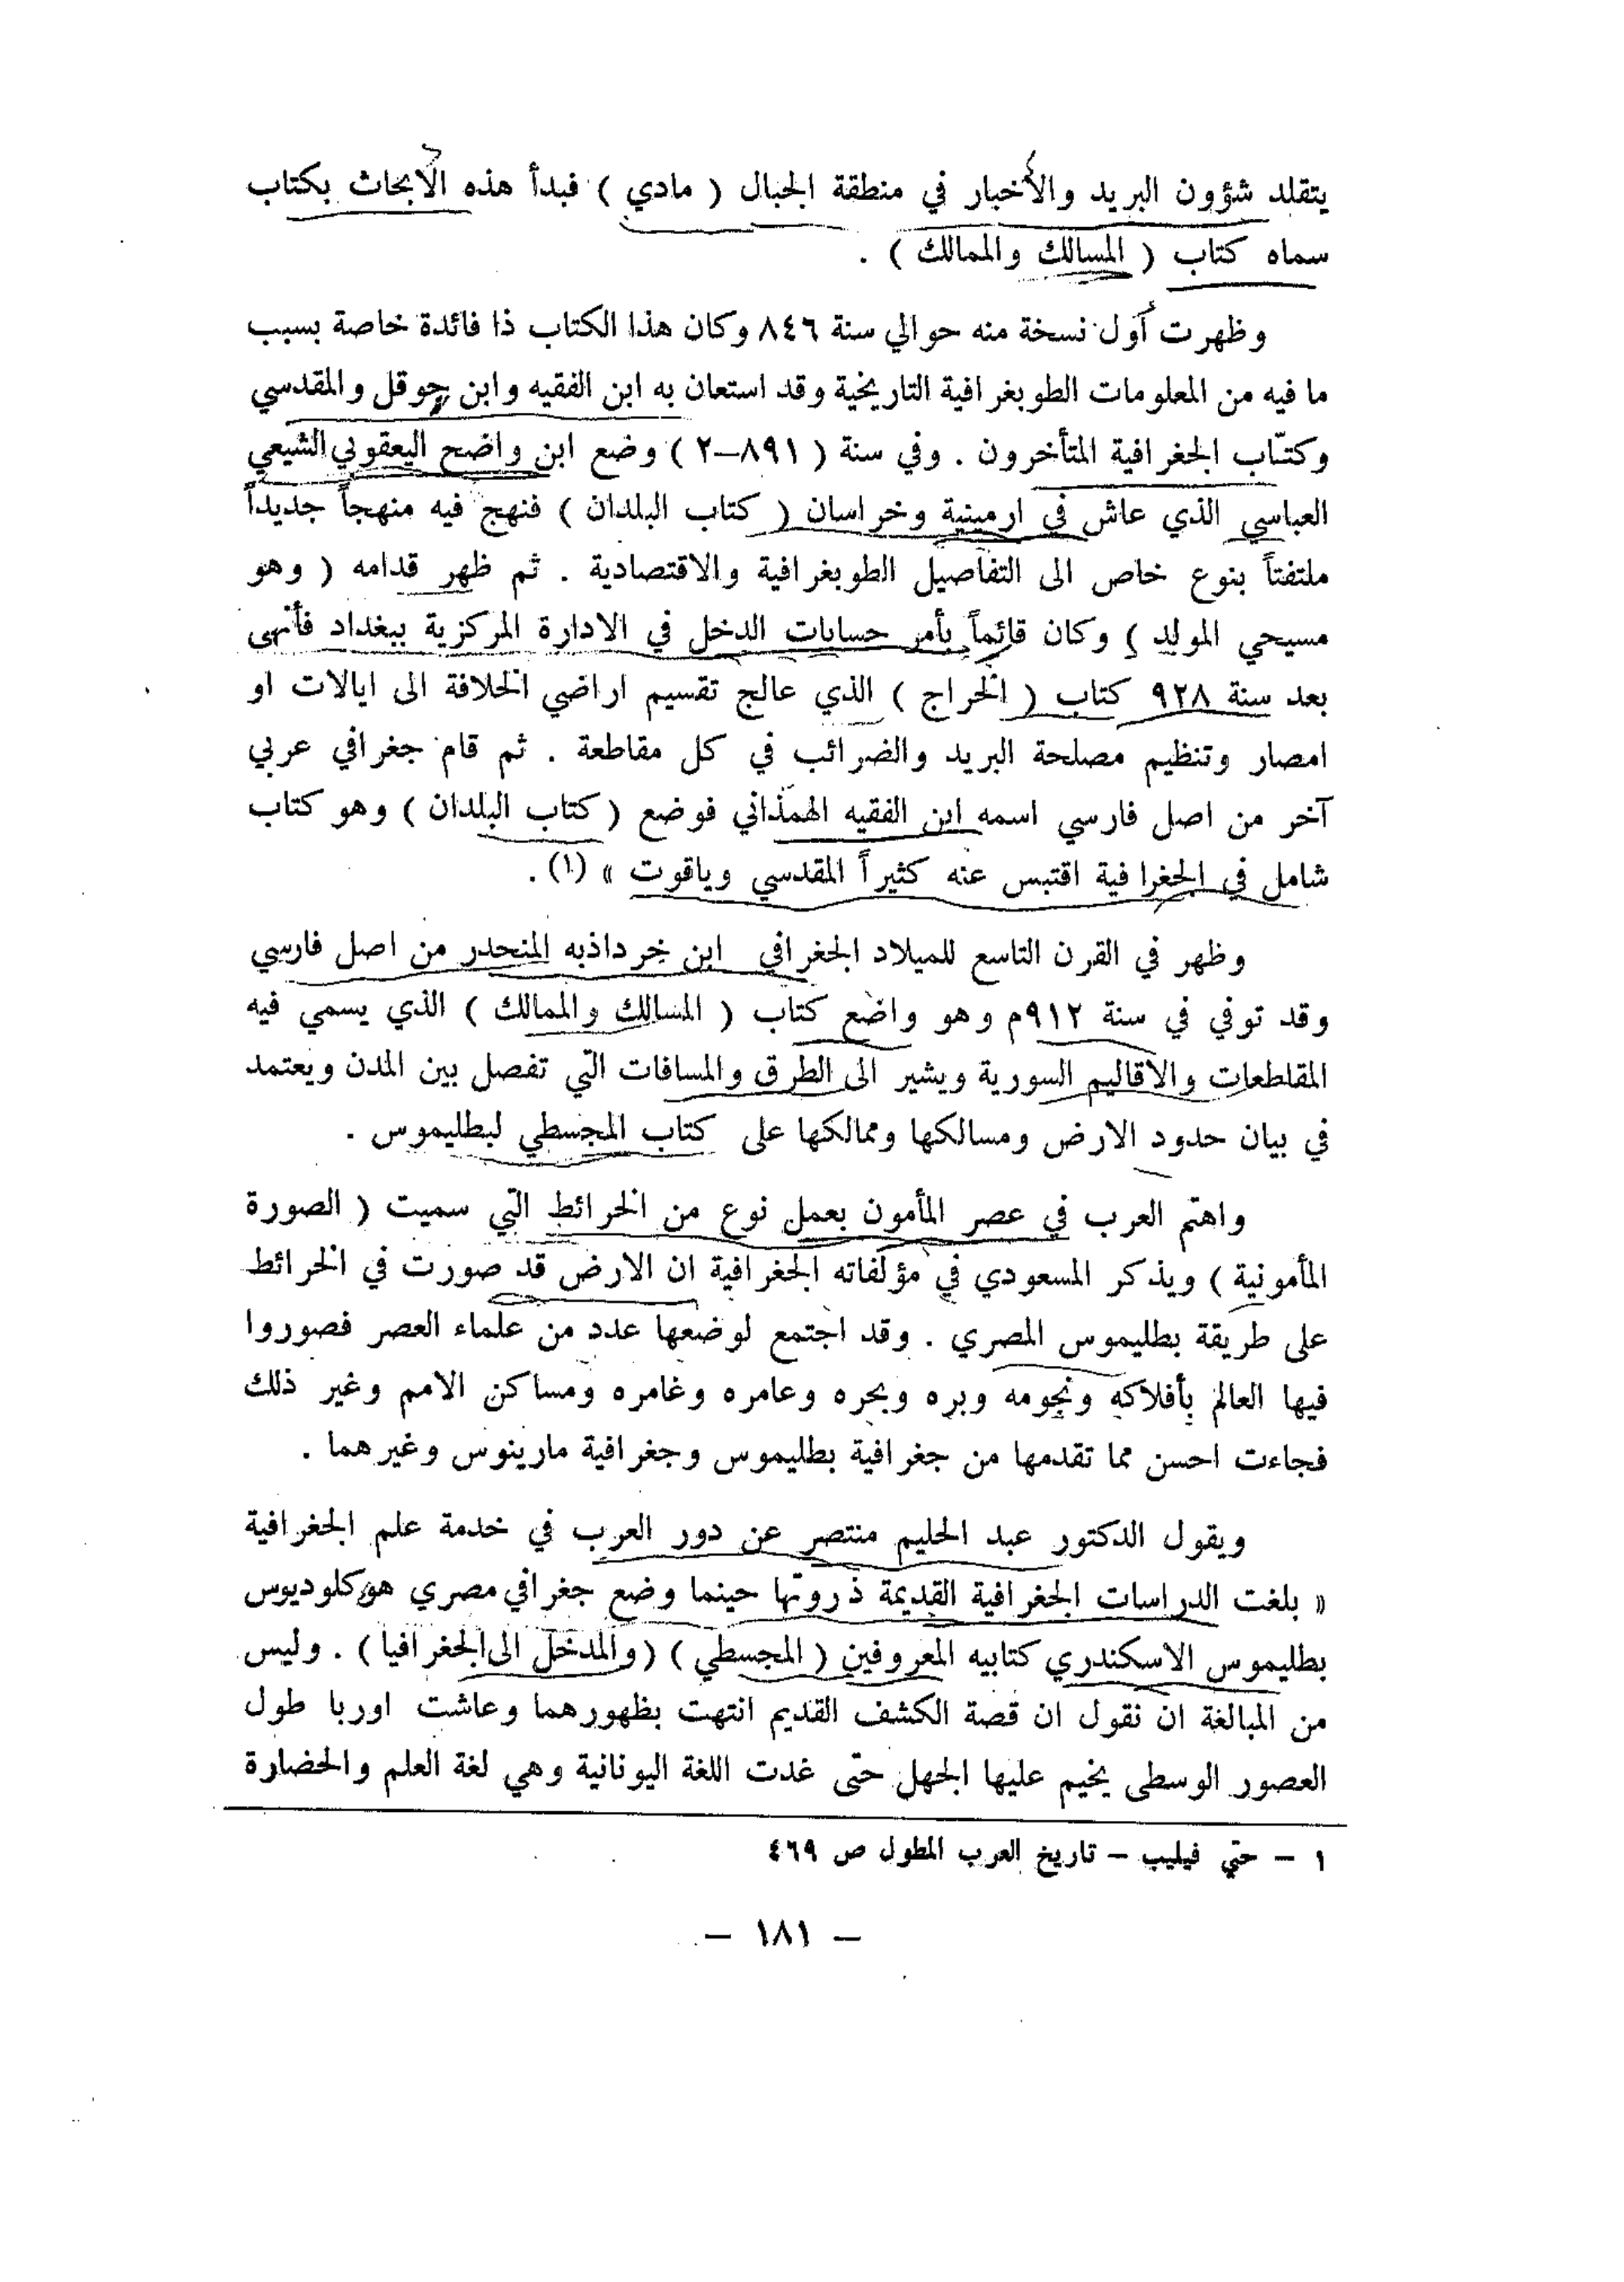 يتقلد شؤون البريد والأخبار في منطقة الجبال ( مادي ) فبدأ هذه الأبحاث بكتاب
سماه كتاب ( المسالك والممالك ) .
وظهرت أول نسخة منه حوالي سنة ٨٤٦ وكان هذا الكتاب ذا فائدة خاصة بسبب
ما فيه من المعلومات الطوبغرافية التاريخية وقد استعان به ابن الفقيه وابن حوقل والمقدسي
وكتّاب الجغرافية المتأخرون . وفي سنة ( ٨٩١–٢ ) وضع ابن واضح اليعقوبي الشيعي
العباسي الذي عاش في ارمينية وخراسان ( كتاب البلدان ) فنهج فيه منهجاً جديداً
ملتفتاً بنوع خاص الى التفاصيل الطوبغرافية والاقتصادية . ثم ظهر قدامه ( وهو
مسيحي المولد ) وكان قائماً بأمر حسابات الدخل في الادارة المركزية ببغداد فأنهى
بعد سنة ٩٢٨ كتاب ( الخراج ) الذي عالج تقسيم اراضي الخلافة الى ايالات او
امصار وتنظيم مصلحة البريد والضرائب في كل مقاطعة . ثم قام جغرافي عربي
آخر من اصل فارسي اسمه ابن الفقيه الهمذاني فوضع ( كتاب البلدان ) وهو كتاب
شامل في الجغرافية اقتبس عنه كثيراً المقدسي وياقوت » (١) .
وظهر في القرن التاسع للميلاد الجغرافي ابن خرداذبه المنحدر من اصل فارسي
وقد توفي في سنة ٩١٢م وهو واضع كتاب ( المسالك والممالك ) الذي يسمي فيه
المقاطعات والاقاليم السورية ويشير الى الطرق والمسافات التي تفصل بين المدن ويعتمد
في بيان حدود الارض ومسالكها وممالكها على كتاب المجسطي لبطليموس .
واهتم العرب في عصر المأمون بعمل نوع من الخرائط التي سميت ( الصورة
المأمونية ) ويذكر المسعودي في مؤلفاته الجغرافية ان الارض قد صورت في الخرائط
على طريقة بطليموس المصري . وقد اجتمع لوضعها عدد من علماء العصر فصوروا
فيها العالم بأفلاكه ونجومه وبره وبحره وعامره وغامره ومساكن الامم وغير ذلك
فجاءت احسن مما تقدمها من جغرافية بطليموس وجغرافية مارينوس وغيرهما .
ويقول الدكتور عبد الحليم منتصر عن دور العرب في خدمة علم الجغرافية
« بلغت الدراسات الجغرافية القديمة ذروتها حينما وضع جغرافي مصري هو كلوديوس
بطليموس الاسكندري كتابيه المعروفين ( المجسطي ) ( والمدخل الى الجغرافيا ) . وليس
من المبالغة ان نقول ان قصة الكشف القديم انتهت بظهورهما وعاشت اوربا طول
العصور الوسطى يخيم عليها الجهل حتى غدت اللغة اليونانية وهي لغة العلم والحضارة
١ – حتي فيليب – تاريخ العرب المطول ص ٤٦٩
– ١٨١ –